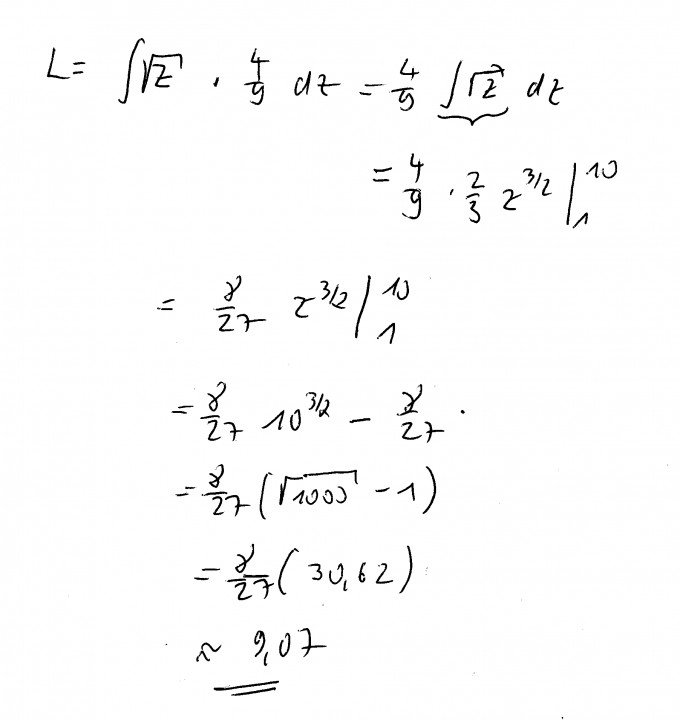 L= ∫√z · 4/9 dz = 4/9 ∫√z dz
= 4/9 · 2/3 z^3/2 |_1^10
= 8/27 z^3/2 |_1^10
= 8/27 10^3/2 − 8/27 .
= 8/27 (√1000 − 1)
= 8/27 (30,62)
≈ 9,07